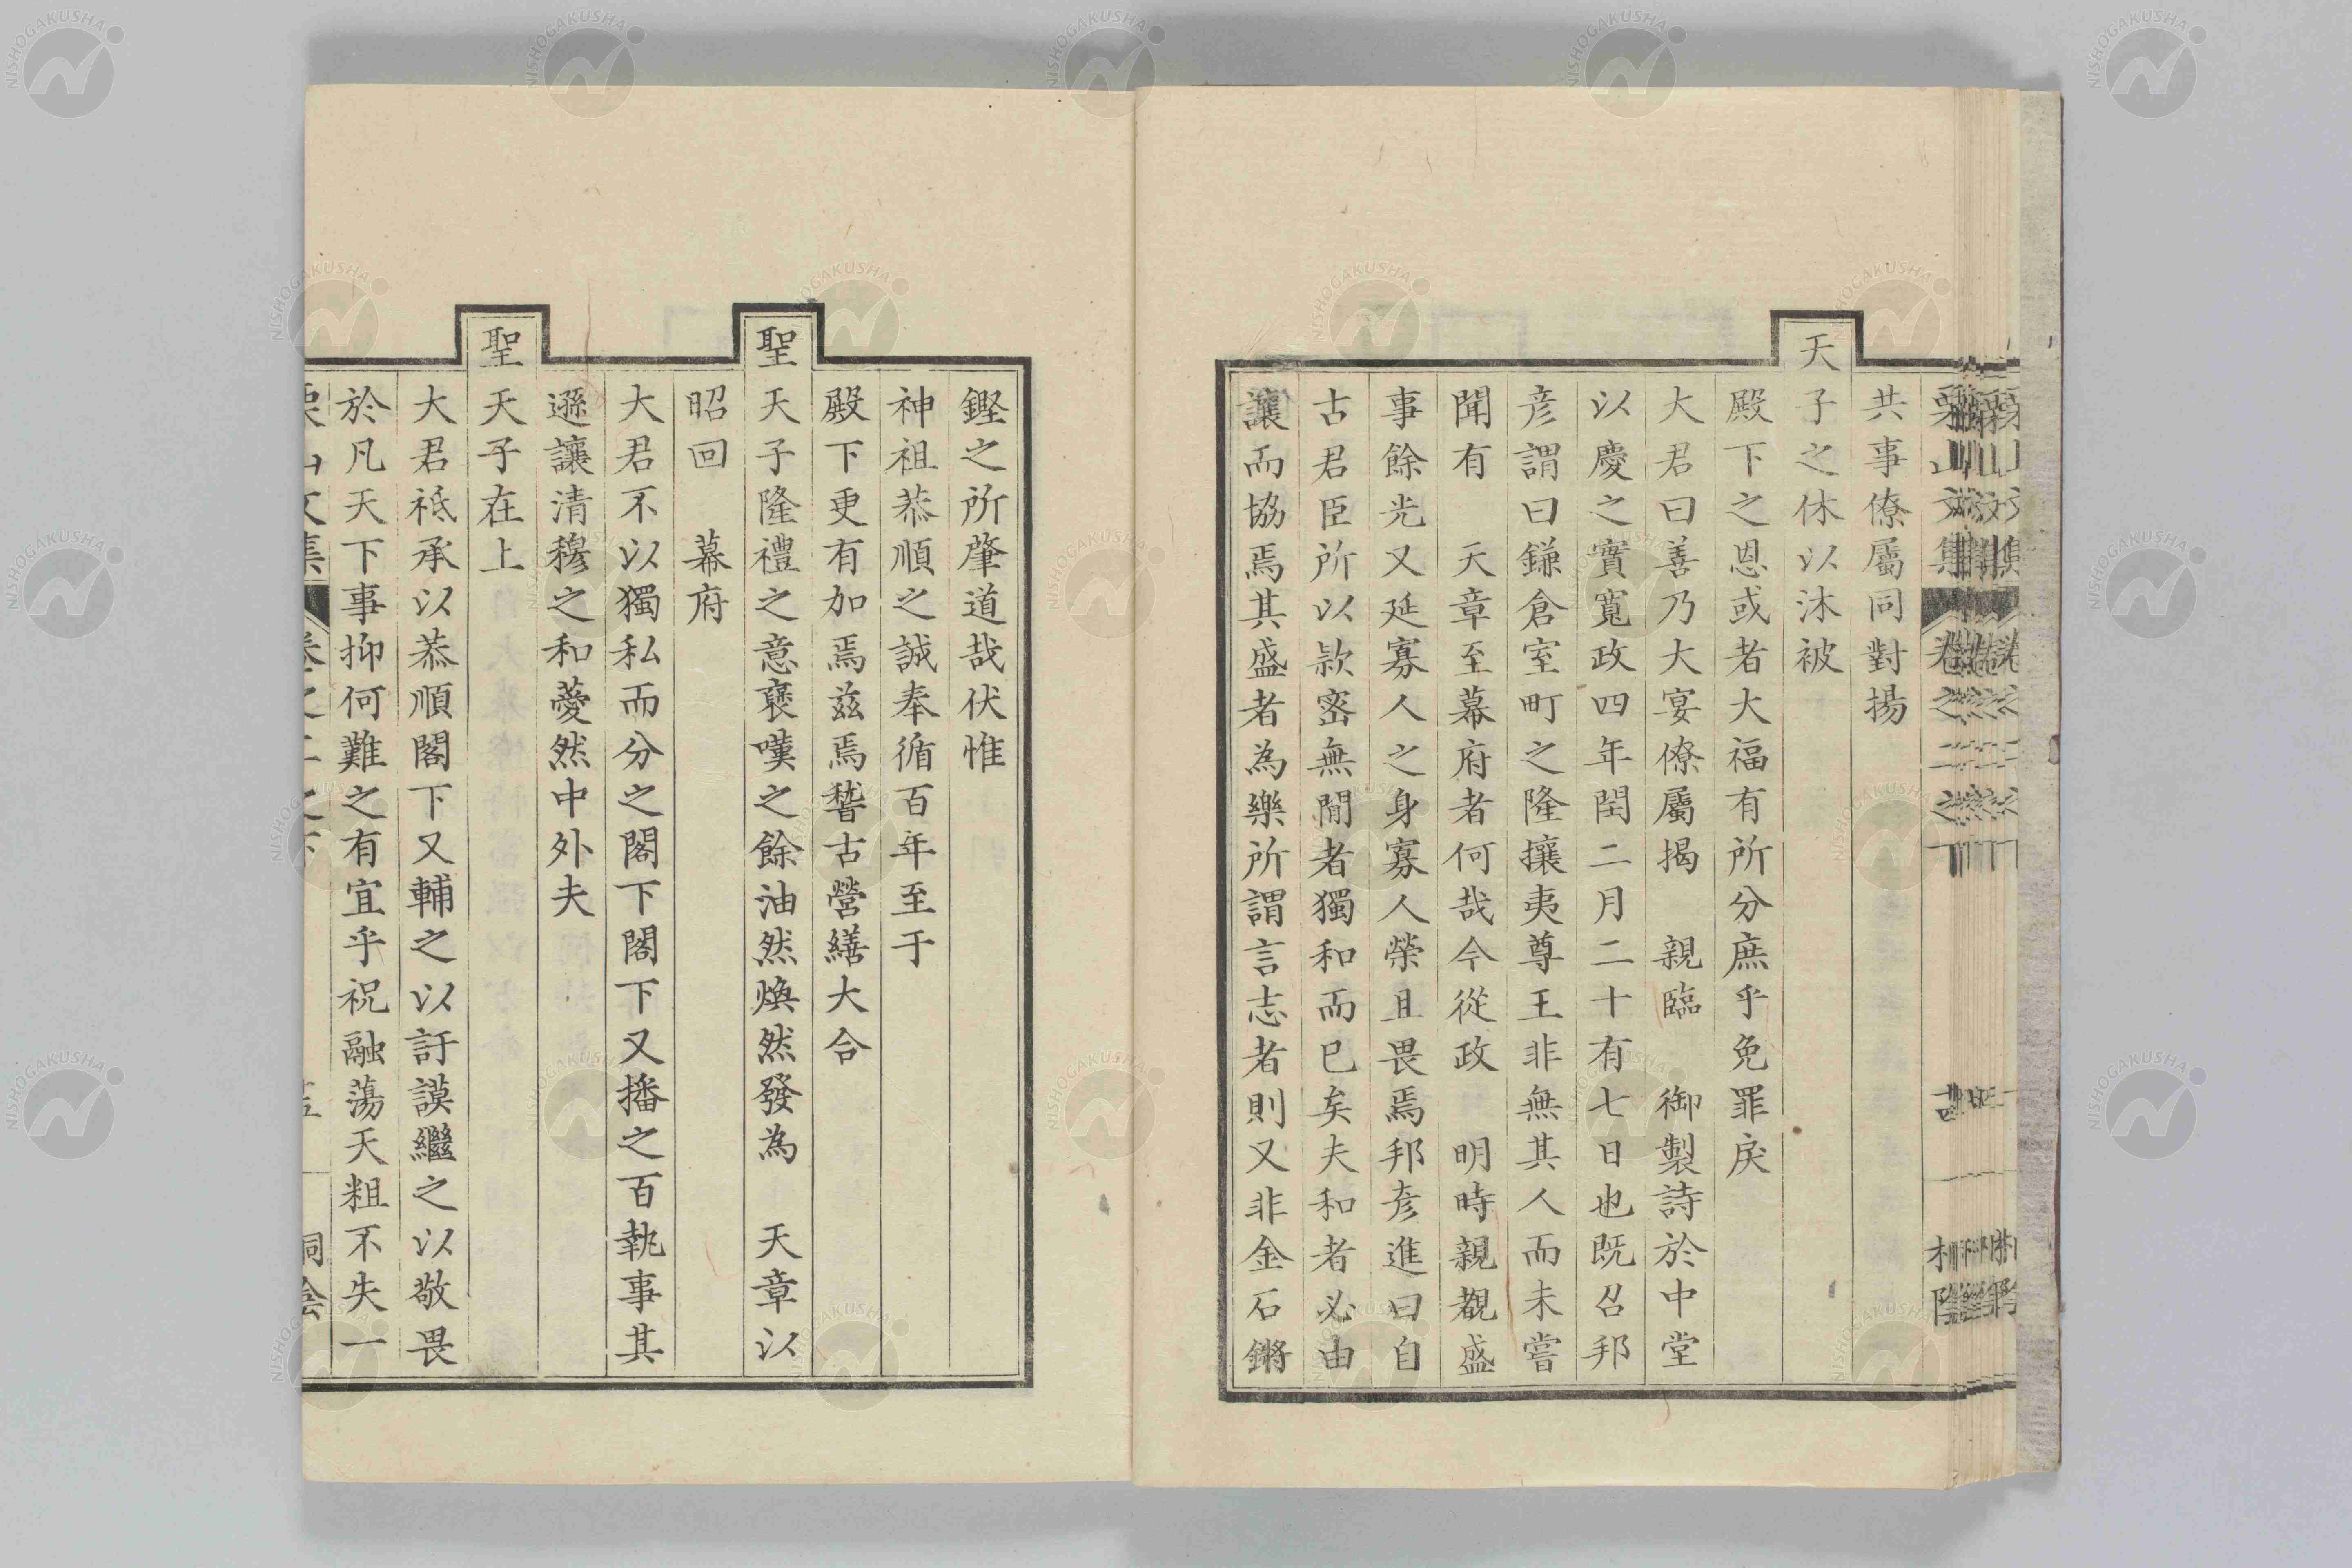 共事僚屬同對揚
天子之休以沐被
殿下之恩或者大福有所分庶乎免罪戾
大君曰善乃大宴僚屬揭　親臨　御製詩於中堂
以慶之實寬政四年閏二月二十有七日也既召邦
彦謂曰鎌倉室町之隆攘夷尊王非無其人而未嘗
聞有　天章至幕府者何哉今從政　明時親覩盛
事餘光又延寡人之身寡人榮且畏焉邦彦進曰自
古君臣所以款密無間者獨和而已矣夫和者必由
讓而協焉其盛者為樂所謂言志者則又非金石鏘
鏗之所肇道哉伏惟
神祖恭順之誠奉循百年至于
殿下更有加焉茲焉稽古營繕大合
聖天子隆禮之意褒嘆之餘油然煥然發為　天章以
昭回　幕府
大君不以獨私而分之閣下閣下又播之百執事其
遜讓清穆之和藹然中外夫
聖天子在上
大君祗承以恭順閣下又輔之以訏謨繼之以敬畏
於凡天下事抑何難之有宜乎祝融蕩天粗不失一
栗山文集　卷之二之下
NISHOGAKUSHA